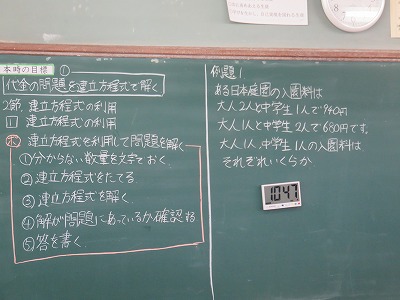 本時の目標
①
代金の問題を連立方程式で解く
2節 連立方程式の利用
1 連立方程式の利用
㋭ 連立方程式を利用して問題を解く
①分からない数量を文字でおく.
②連立方程式をたてる
③連立方程式を解く.
④解が問題にあっているか確認する
⑤答を書く.
例題1
ある日本庭園の入園料は
大人2人と中学生1人で940円
大人1人と中学生2人で680円です。
大人1人、中学生1人の入園料は
それぞれいくらか
10:47